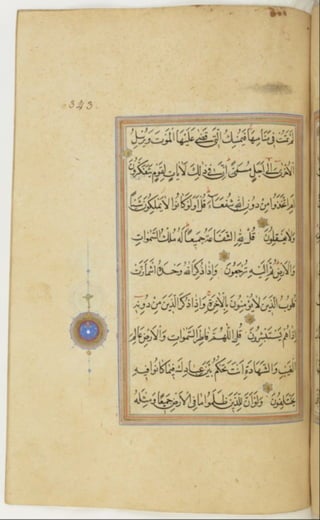 343
لم تمت فى منامها فيمسك التى قضى عليها الموت ويرسل
الاخرى الى اجل مسمى ان فى ذلك لايات لقوم يتفكرون
ام اتخذوا من دون الله شفعاء قل اولو كانوا لا يملكون شيئا
ولا يعقلون قل لله الشفاعة جميعا له ملك السموات
والارض ثم اليه ترجعون واذا ذكر الله وحده اشمازت
قلوب الذين لا يؤمنون بالاخرة واذا ذكر الذين من دونه
اذا هم يستبشرون قل اللهم فاطر السموات والارض عالم
الغيب والشهادة انت تحكم بين عبادك فيما كانوا فيه
يختلفون ولو ان للذين ظلموا ما فى الارض جميعا ومثله